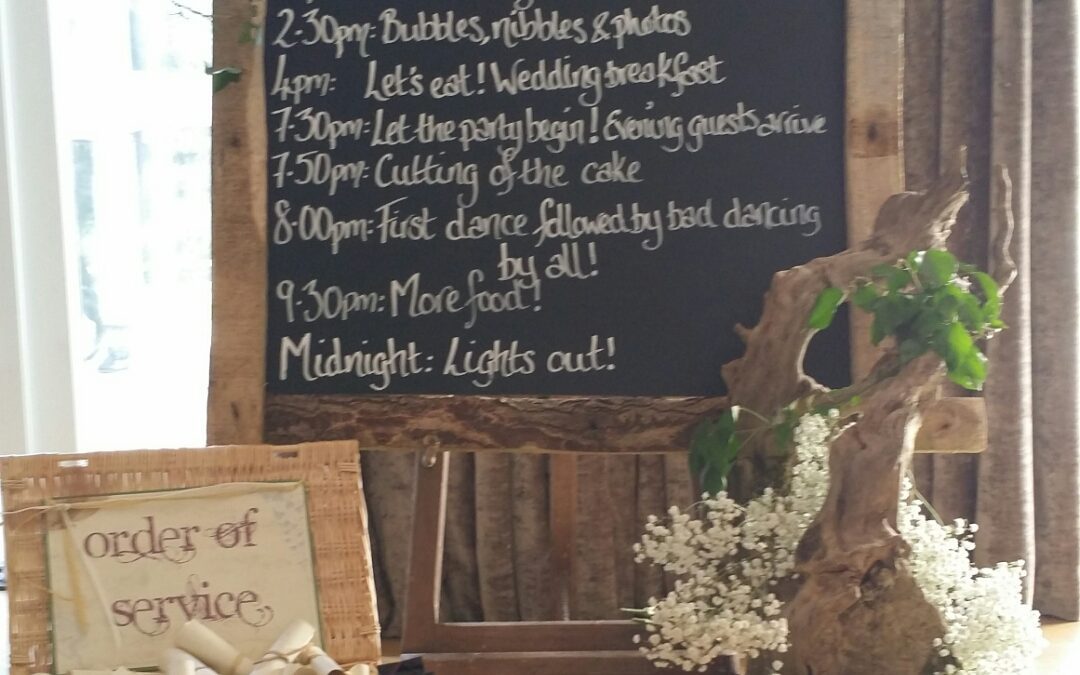 2-30pm: Bubbles, nibbles & photos
4pm: Let's eat! Wedding breakfast
7-30pm: Let the party begin! Evening guests arrive
7-50pm: Cutting of the cake
8-00pm: First dance followed by bad dancing
by all!
9-30pm: More food!
Midnight: Lights out!
order of
service